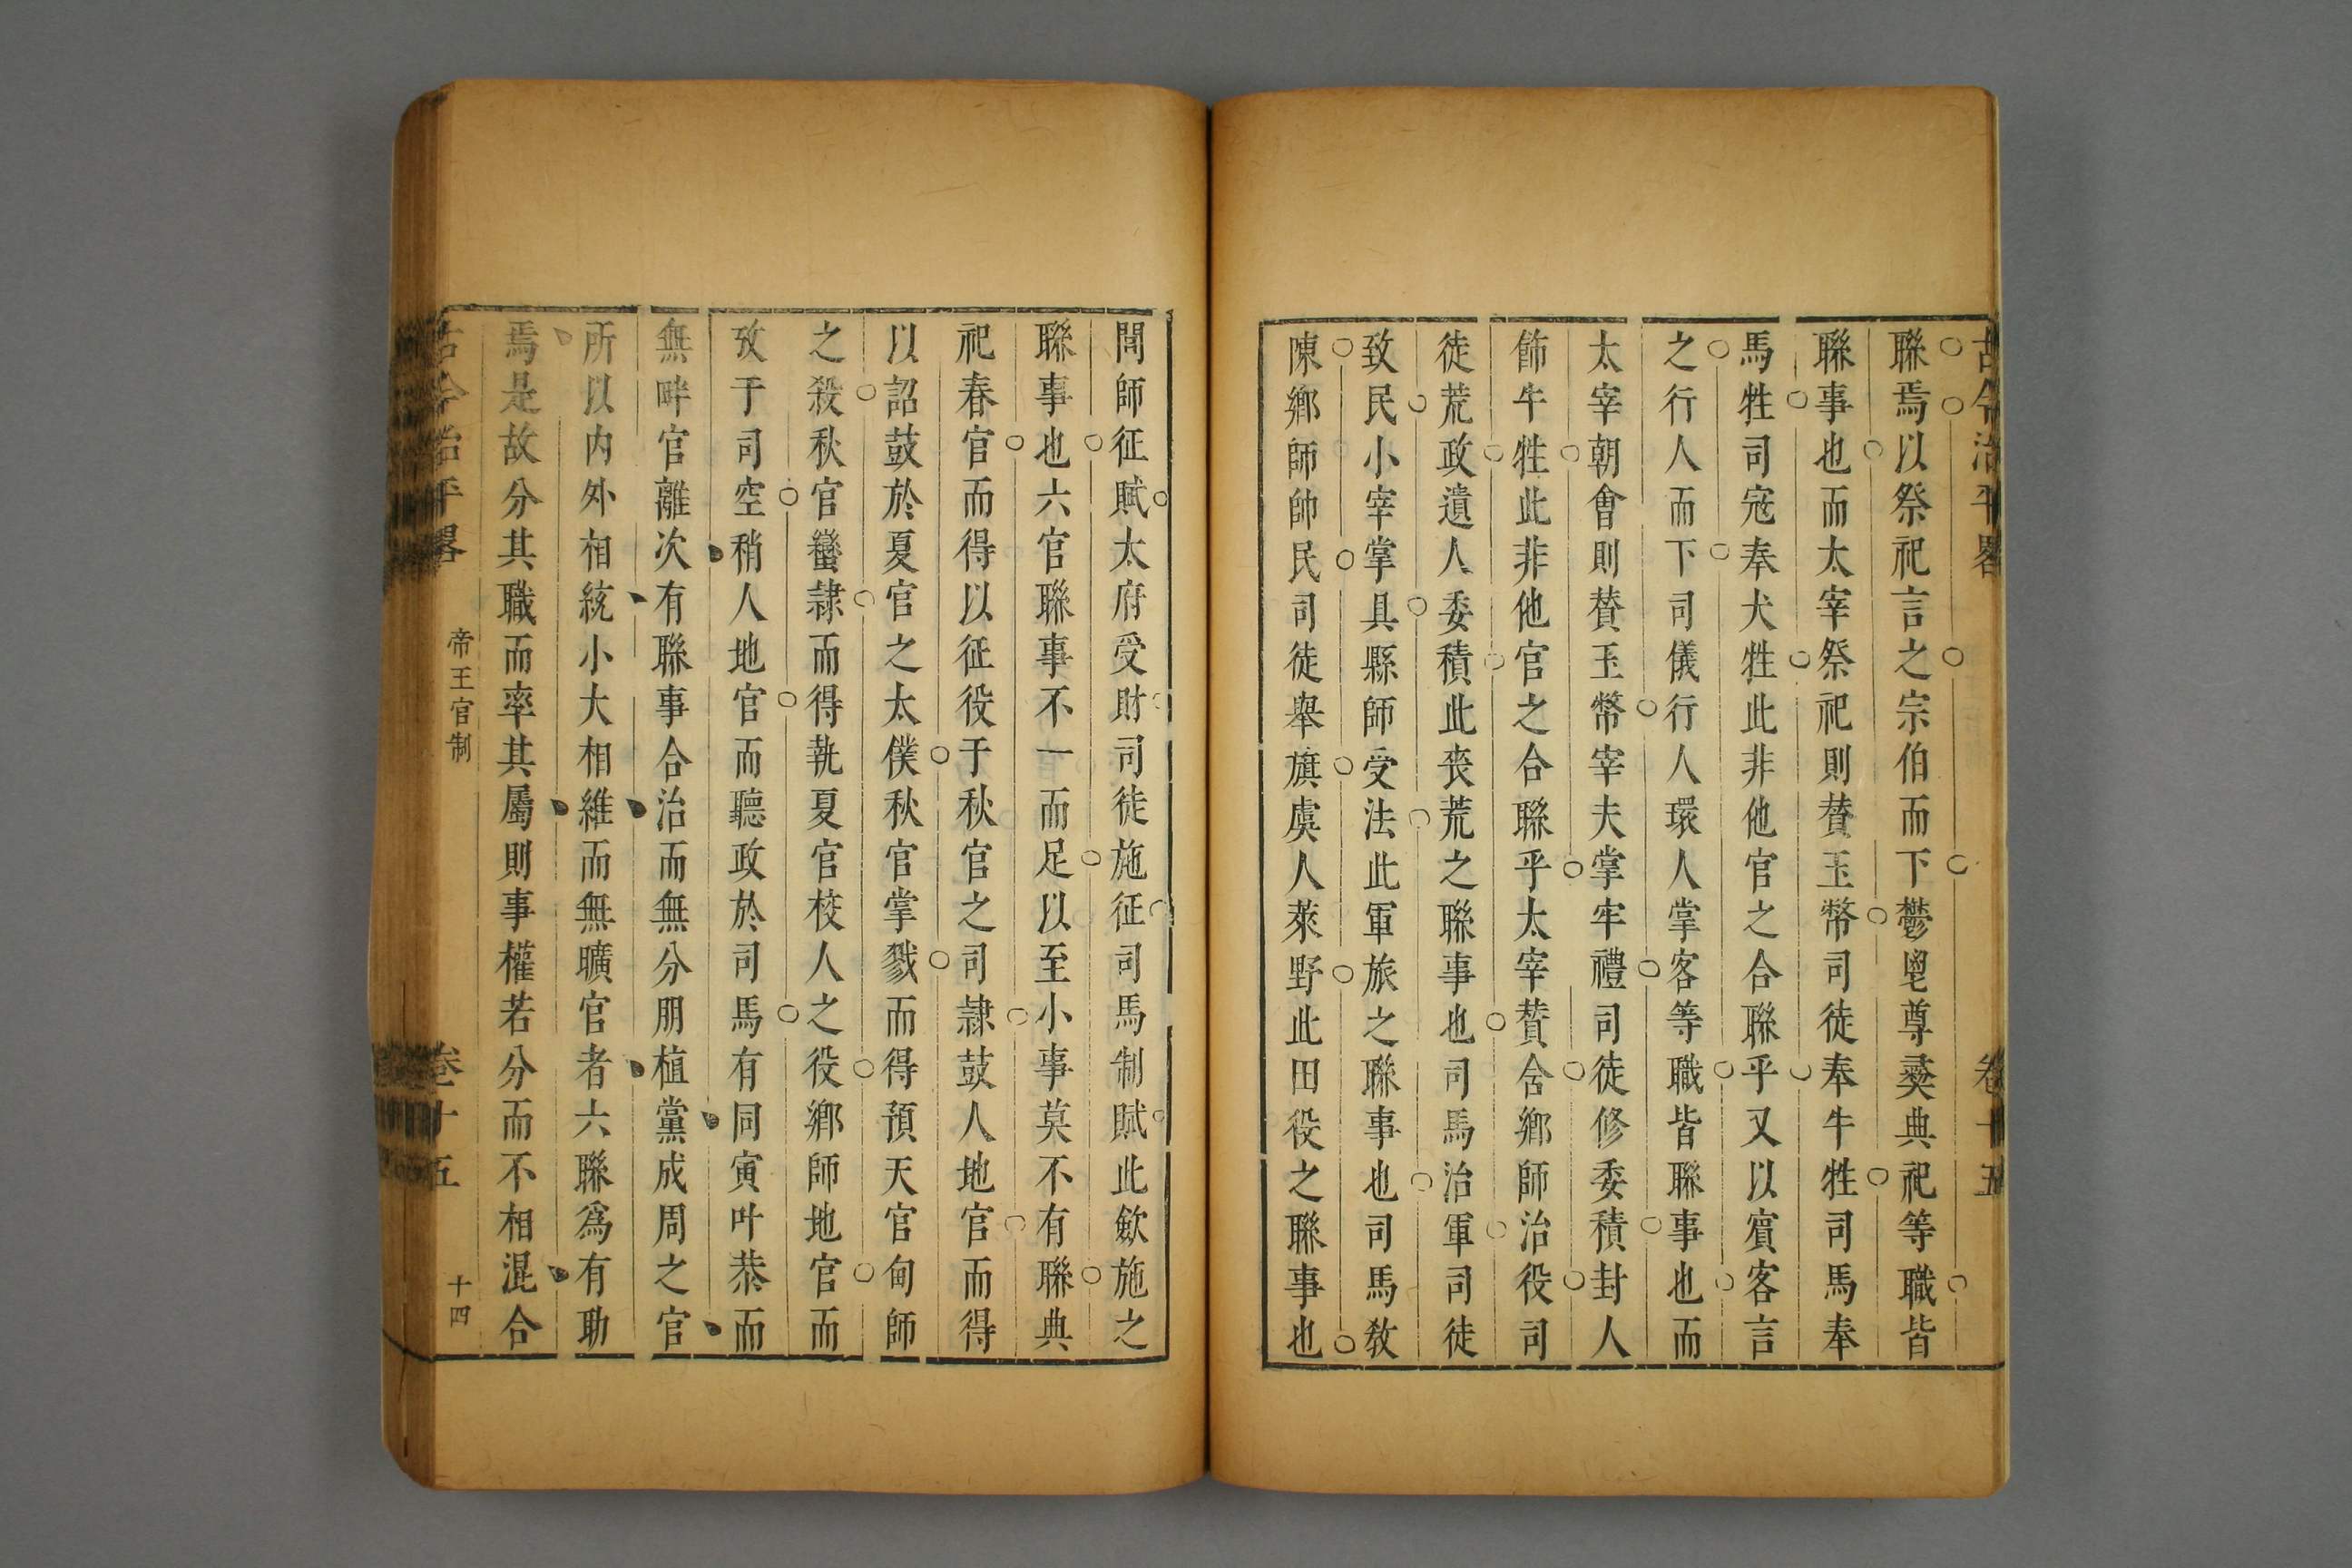 古今治平畧 卷十五
聯焉以祭祀言之宗伯而下鬱鬯尊彞典祀等職皆
聯事也而太宰祭祀則賛玉幣司徒奉牛牲司馬奉
馬牲司宼奉犬牲此非他官之合聯乎又以賔客言
之行人而下司儀行人環人掌客等職皆聯事也而
太宰朝會則賛玉幣宰夫掌牢禮司徒修委積封人
飾牛牲此非他官之合聯乎太宰賛含鄉師治役司
徒荒政遺人委積此喪荒之聯事也司馬治軍司徒
致民小宰掌具縣師受法此軍旅之聯事也司馬敎
陳鄉師帥民司徒舉旗虞人萊野此田役之聯事也
閭師征賦太府受財司徒施征司馬制賦此歛施之
聯事也六官聯事不一而足以至小事莫不有聯典
祀春官而得以征役于秋官之司隷鼓人地官而得
以詔鼓於夏官之太僕秋官官掌戮而得預天官甸師
之殺秋官蠻隷而得執夏官校人之役鄉師地官而
攷于司空稍人地官而聽政於司馬有同寅叶恭而
無畔官離次有聯事合治而無分朋植黨成周之官
所以内外相統小大相維而無曠官者六聯爲有助
焉是故分其職而率其屬則事權若分而不相混合
古今治平畧 帝王官制 卷十五 十四